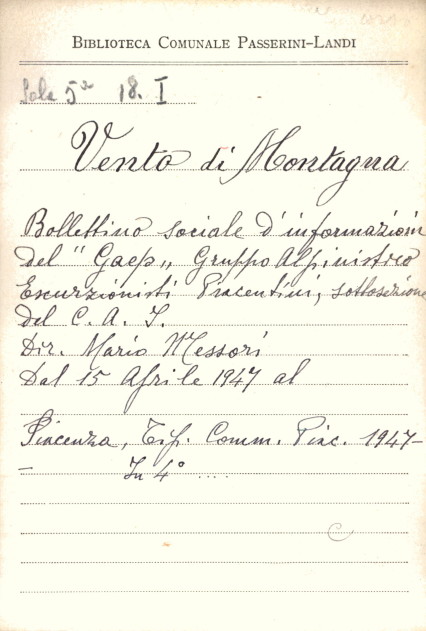 BIBLIOTECA COMUNALE PASSERINI-LANDI
Sala 5a 18. I
Vento di Montagna
Bollettino sociale d'informazioni
del "Gaep„ Gruppo Alpinistico
Escurzionisti Piacentini, sottosezione
del C. A. I.
Dir. Mario Messori
Dal 15 Aprile 1947 al
Piacenza, Tip. Comm. Piac. 1947-
- In 4° ....
C